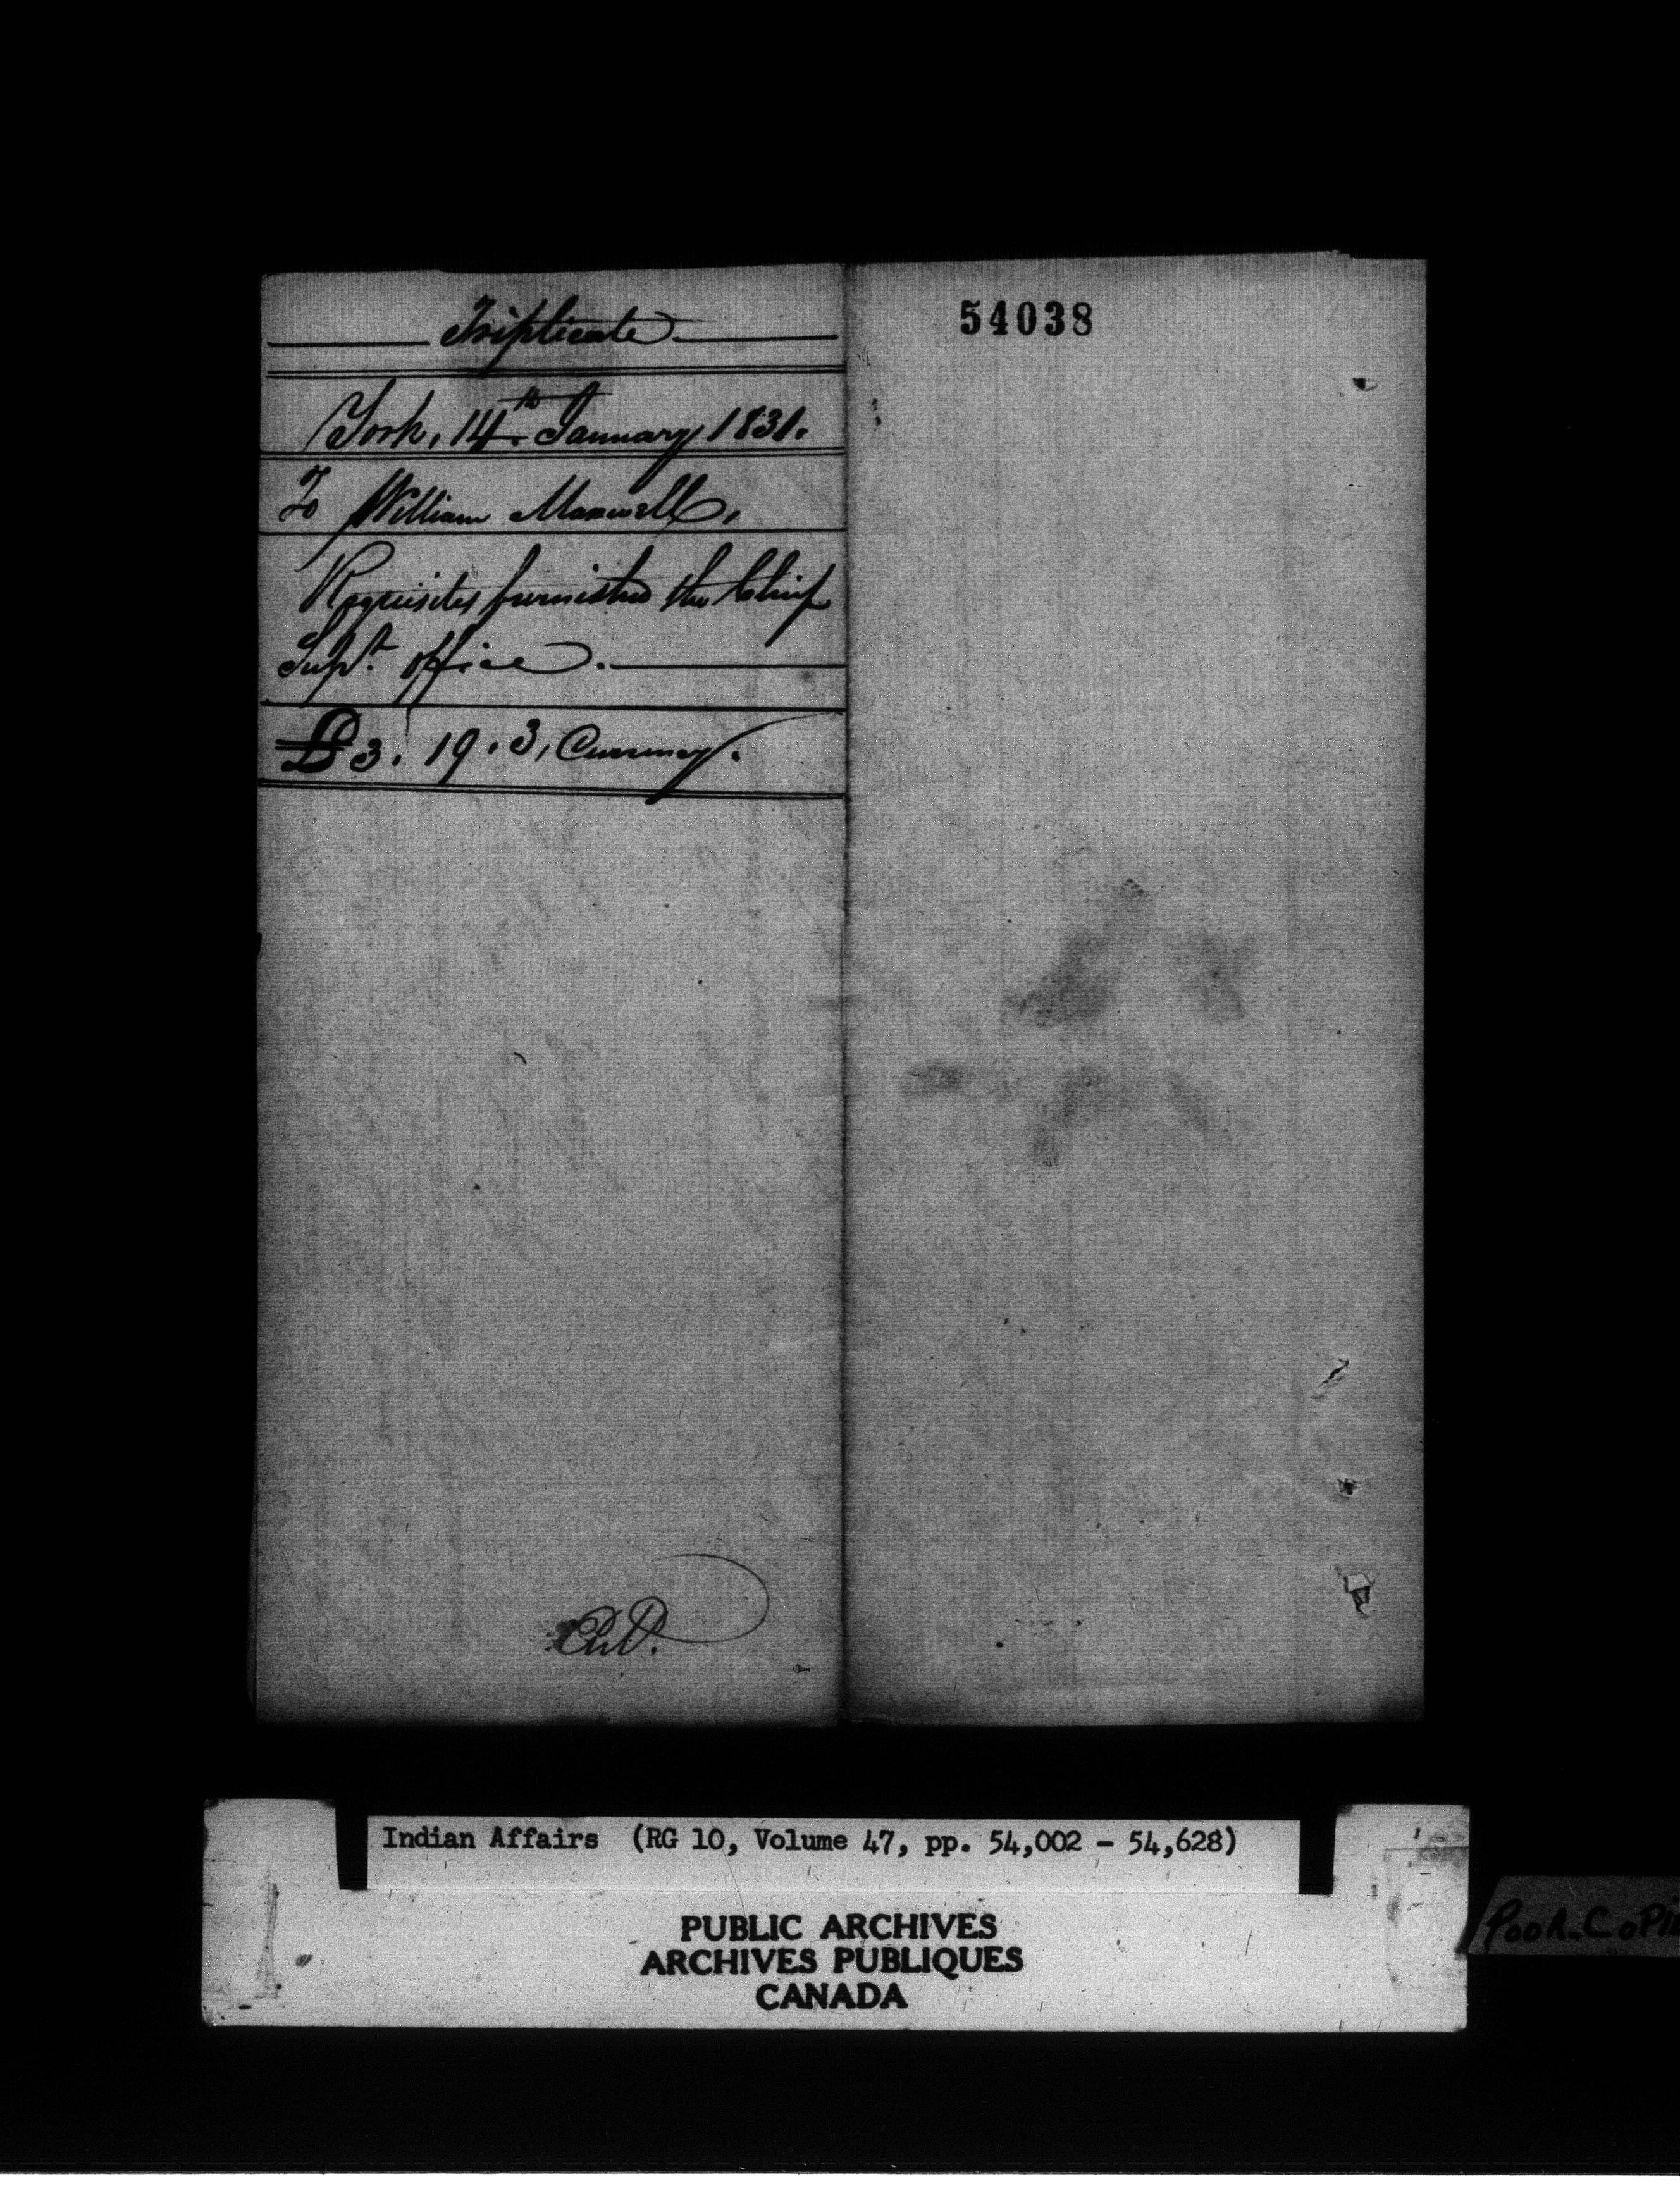 Triplicate
York, 14th January 1831.
To William Maxwell,
Requisites furnished the Chief
Supt. office.
£3. 19. 3, Currency.
54038
Indian Affairs (RG 10, Volume 47, pp. 54,002 - 54,628)
PUBLIC ARCHIVES
ARCHIVES PUBLIQUES
CANADA